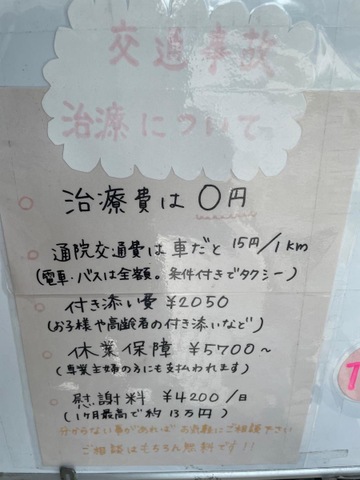 交通事故
治療について
治療費は 0円
通院交通費は車だと 15円/1km
(電車・バスは全額。条件付きでタクシー)
付き添い費 ¥2050
(お子様や高齢者の付き添いなど)
休業保障 ¥5700~
(専業主婦の方にも支払われます)
慰謝料 ¥4200/日
(1ヶ月最高で約13万円)
分からない事があればお気軽にご相談下さい
ご相談はもちろん無料です!!